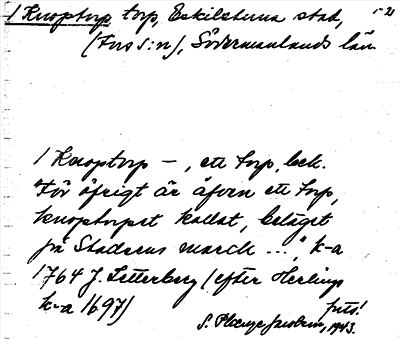 1 Knoptorp torp, Eskilstuna stad,
(Fors s:n), Södermanlands län
1 Knoptorp –, ett torp, bek.
"För öfrigt är äfven ett torp,
knoptorpet kallat, beläget
på Stadsens march ...", k-a
1764 J. Zetterberg (efter Herlings
k-a 1697)
forts!
S. 1943.